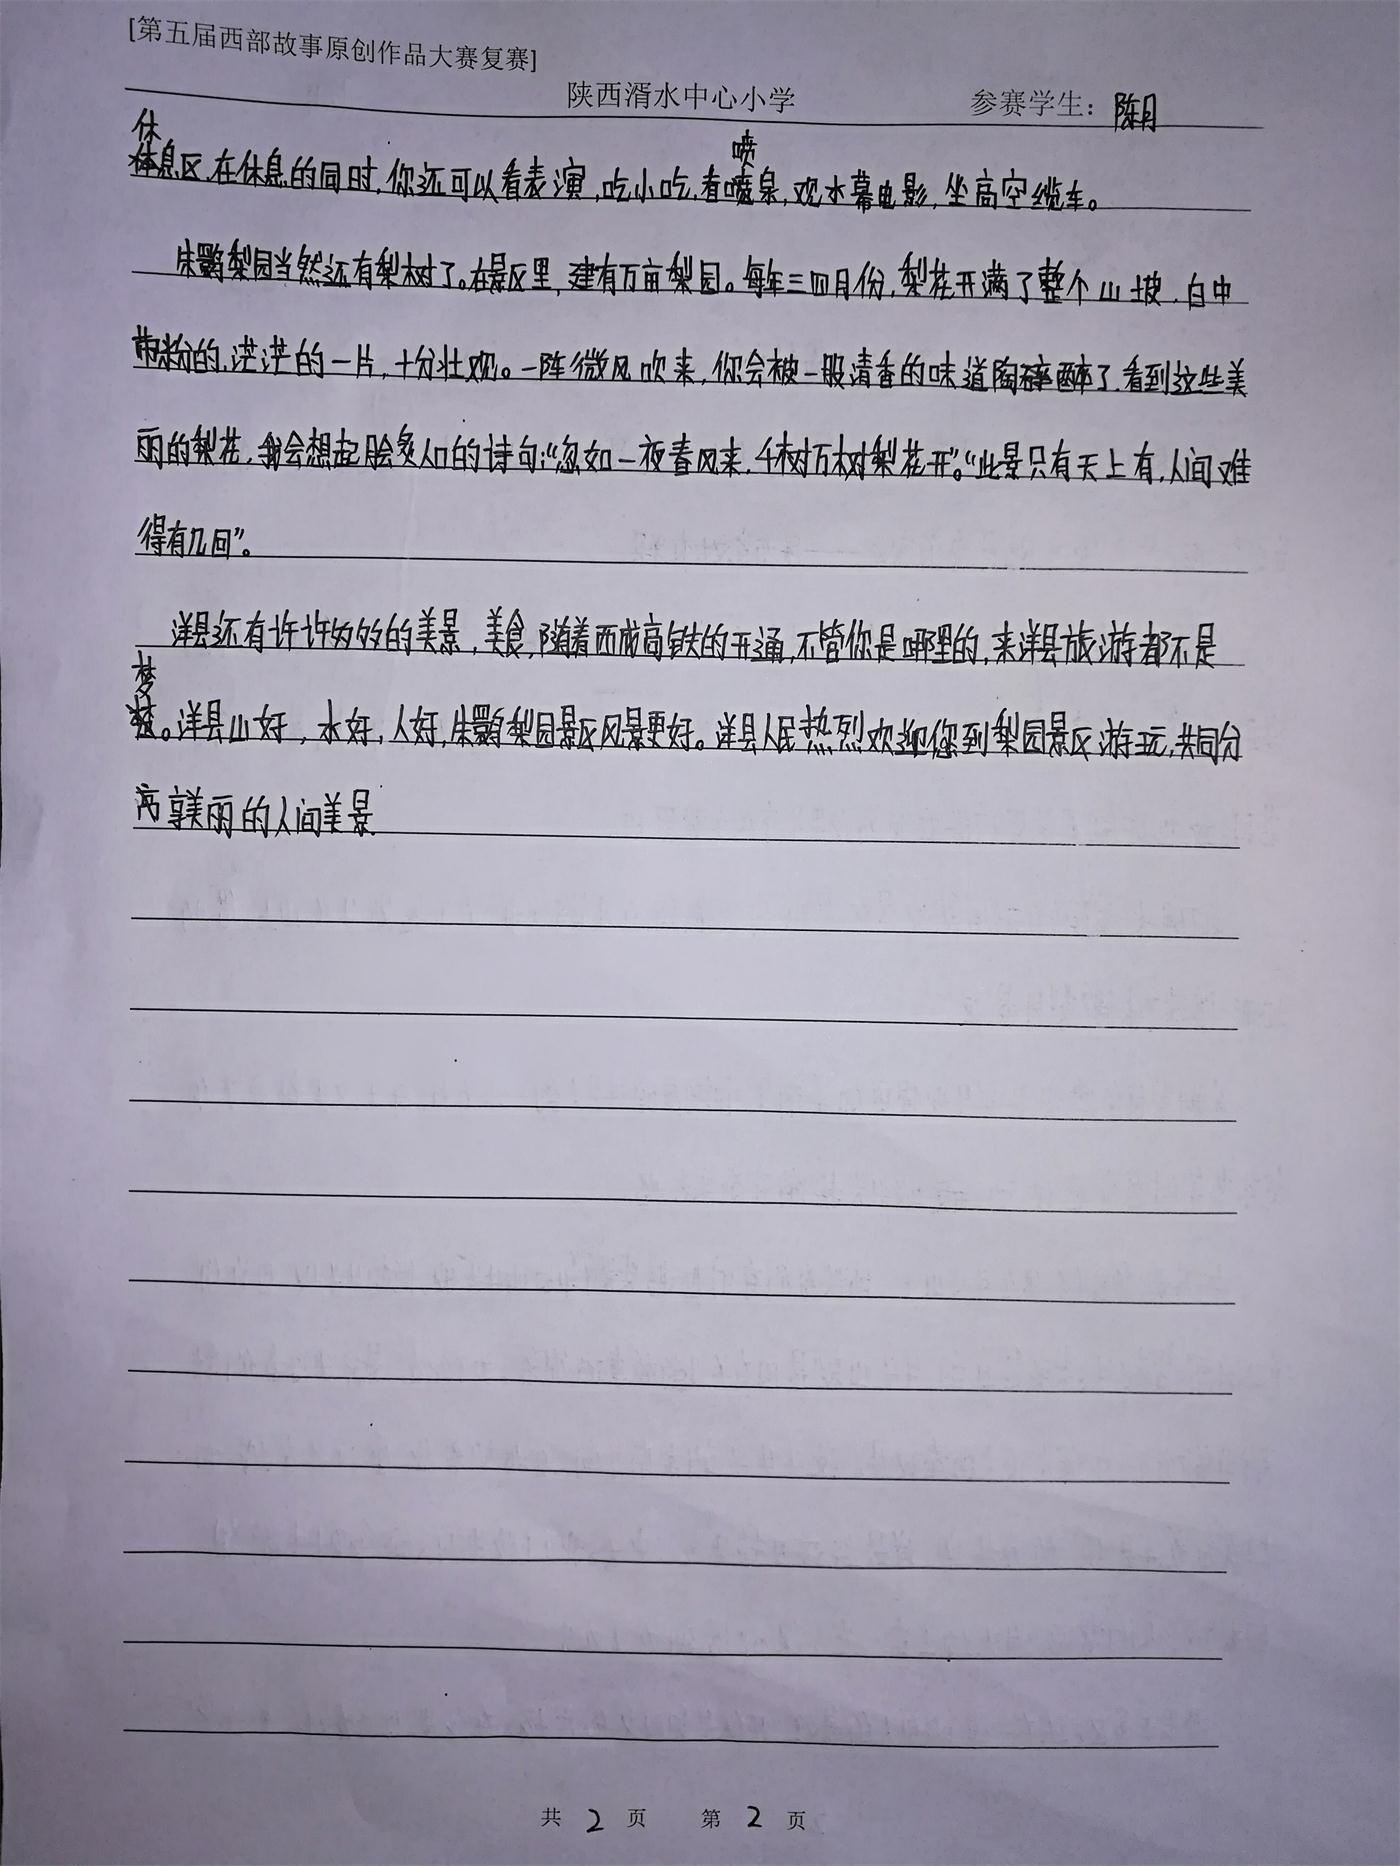 [第五届西部故事原创作品大赛复赛]
陕西湑水中心小学 参赛学生：陈月
休 喷
息区，在休息的同时，你还可以看表演，吃小吃，看喷泉，观水幕电影，坐高空缆车。
朱鹮梨园当然还有梨树了。在景区里，建有万亩梨园。每年三四月份，梨花开满了整个山坡，白中
带粉的，茫茫的一片，十分壮观。一阵微风吹来，你会被一股清香的味道陶醉了，看到这些美
丽的梨花，我会想起脍炙人口的诗句：“忽如一夜春风来，千树万树梨花开”。“此景只有天上有，人间难
得有几回”。
洋县还有许许多多的美景，美食，随着西成高铁的开通，不管你是哪里的，来洋县旅游都不是
梦
。洋县山好，水好，人好，朱鹮梨园景区风景更好。洋县人民热烈欢迎您到梨园景区游玩，共同分
享美丽的人间美景.
共 2 页 第 2 页